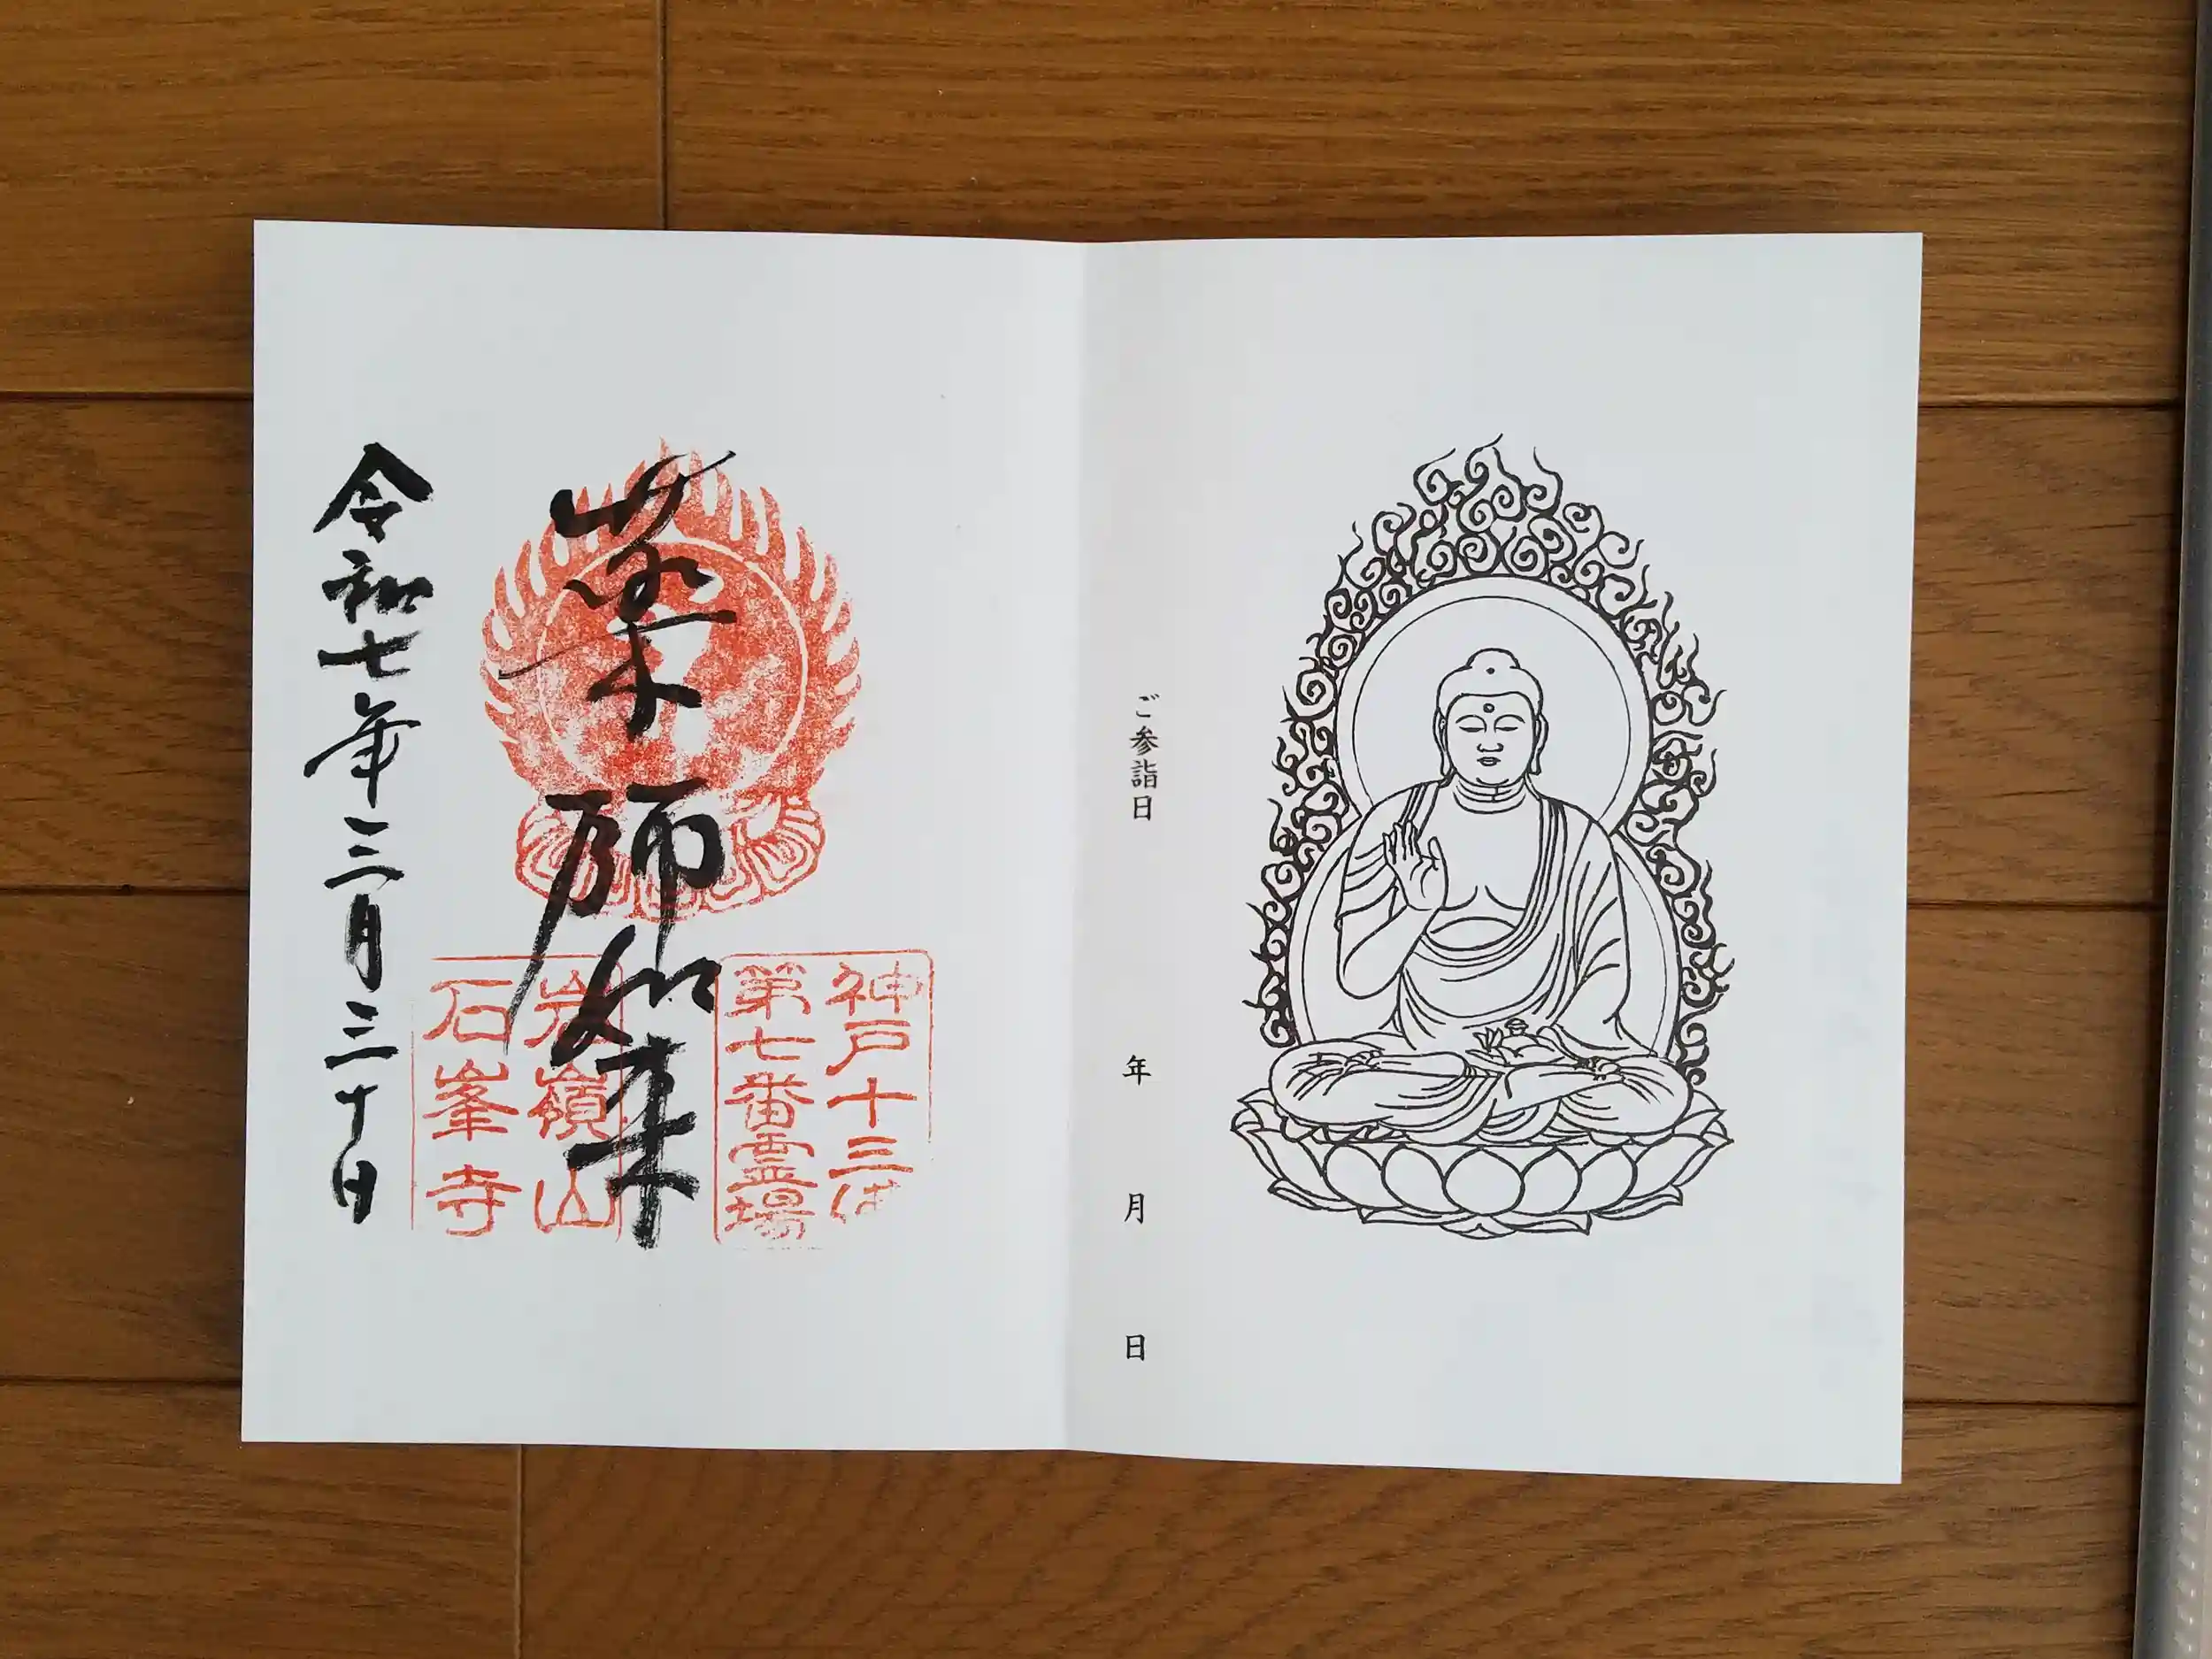 ご参詣日
年 月 日
神戸十三仏
第七番霊場
薬師如来
岩嶺山
石峯寺
令和七年三月三十日